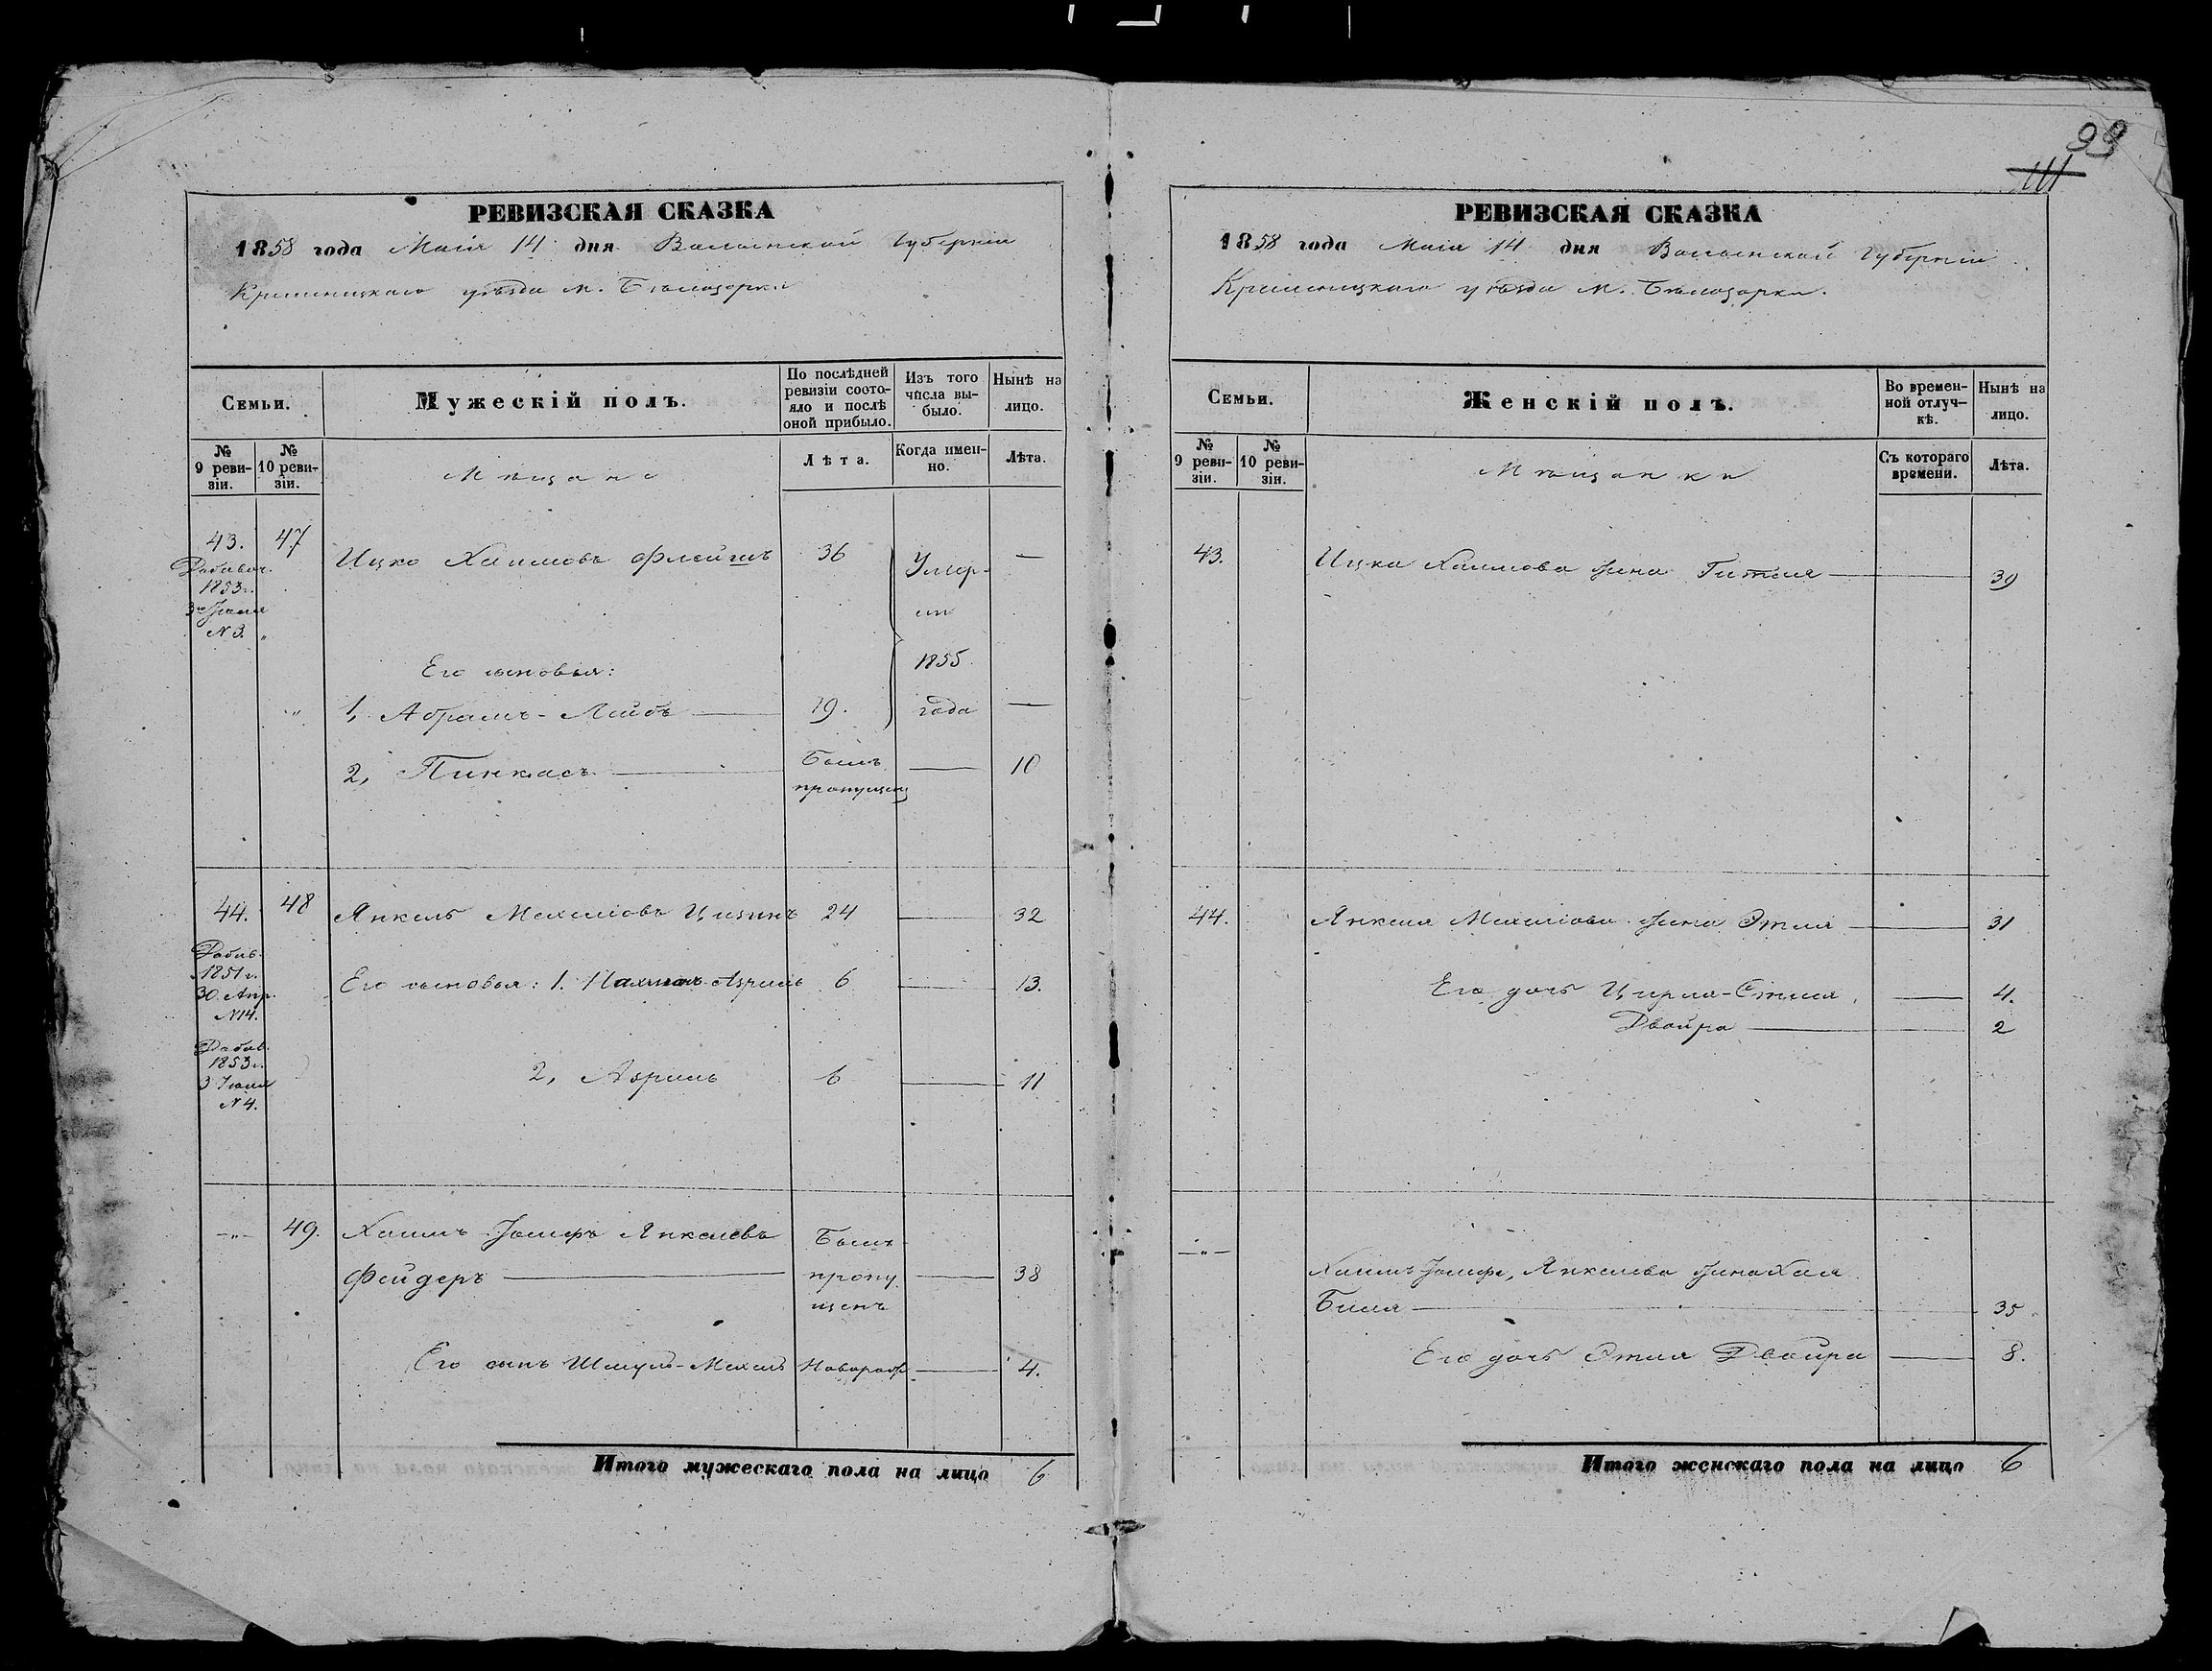 99
111
РЕВИЗСКАЯ СКАЗКА
1858 года Маія 14 дня Волынской Губерніи
Кременецкаго уѣзда м. Бѣлозорки
Семьи.
Мужескій полъ.
По послѣдней ревизіи состояло и послѣ оной прибыло.
Изъ того числа выбыло.
Нынѣ на лицо.
№ 9 ревизіи.
№ 10 ревизіи.
Мѣщане
Лѣта.
Когда именно.
Лѣта.
43. 47 Ицко Хаимовъ Флейшъ 36 Умер- —
Добавоч.
1853 г.
3 Іюля
N 3. "
ли
Его сыновья: 1855
" 1, Абрамъ-Лейбъ — 19. года —
2, Пинкасъ — Былъ пропущен — 10
44. 48 Янкель Мехелювъ Цизинъ 24 — 32
Добав.
1851 г.
30 Апр.
N 14.
Его сыновья: 1. Нахманъ-Азриль 6 — 13.
Добав.
1853 г.
3 Іюля
N 4.
2, Азриль 6 — 11
—"— 49. Хаимъ Іосифъ Янкелевъ Былъ
Фейдеръ — пропу — 38
щенъ
Его сынъ Шмуль-Мехель Новорож. — 4.
Итого мужескаго пола на лицо 6
РЕВИЗСКАЯ СКАЗКА
1858 года Маія 14 дня Волынской Губерніи
Кременецкаго уѣзда м. Бѣлозорки.
Семьи.
Женскій полъ.
Во временной отлучкѣ.
Нынѣ на лицо.
№ 9 ревизіи.
№ 10 ревизіи.
Мѣщанки
Съ котораго времени.
Лѣта.
43. Ицка Хаимова жена Гитля — 39
44. Янкеля Мехелюва жена Этля — 31
Его дочь Цирля-Этля, — 4.
Двойра — 2
—"—
Хаимъ Іосифа, Янкелева жена Хая
Бейля — 35
Его дочь Этля Двойра — 8.
Итого женскаго пола на лицо 6